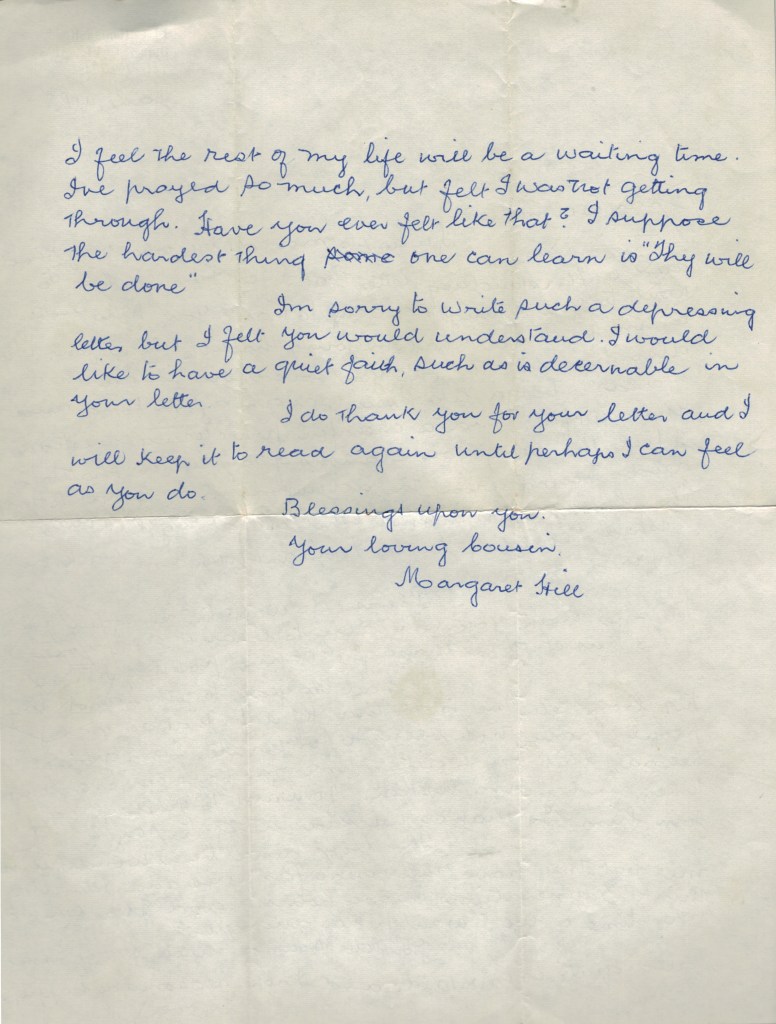 I feel the rest of my life will be a waiting time.
I've prayed so much, but felt I was not getting
through. Have you ever felt like that? I suppose
the hardest thing some one can learn is "Thy will
be done"
Im sorry to write such a depressing
letter but I felt you would understand. I would
like to have a quiet faith, such as is decernable in
your letter
I do thank you for your letter and I
will keep it to read again until perhaps I can feel
as you do.
Blessings upon you.
Your loving cousin.
Margaret Hill